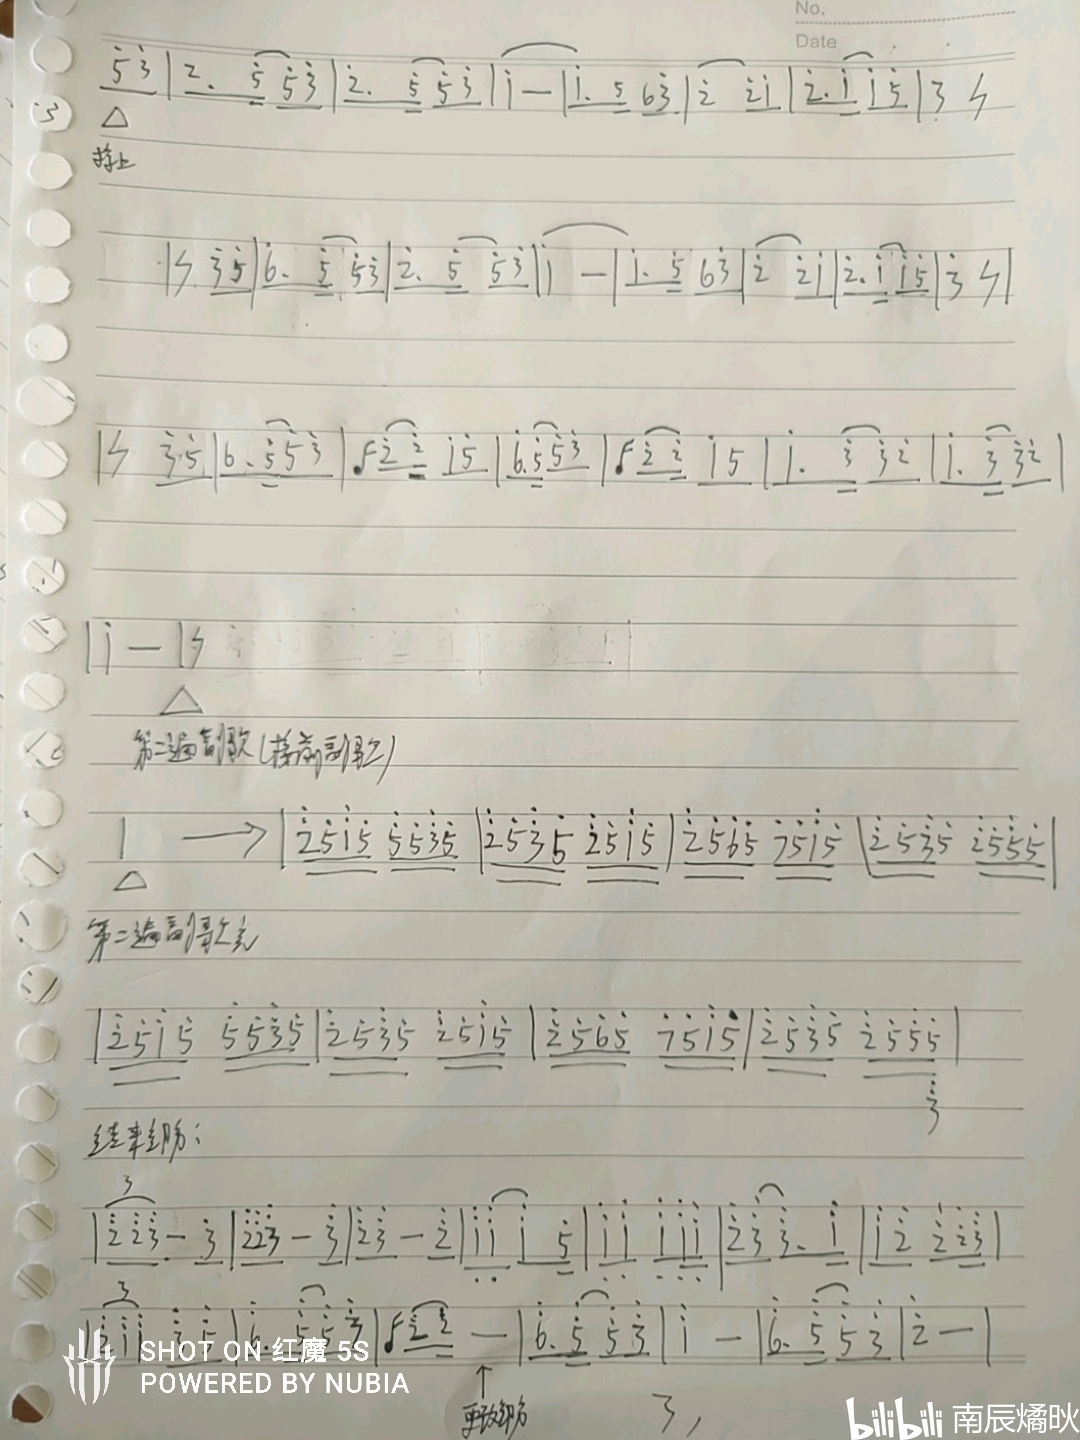 No.
Date
5 3 | 2. 5 5 3 | 2. 5 5 3 | i — | i. 5 6 3 | 2 2 i | 2. i i 5 | 3 ϟ
△
接上
| ϟ 3 5 | 6. 5 5 3 | 2. 5 5 3 | i — | i. 5 6 3 | 2 2 i | 2. i i 5 | 3 ϟ |
| ϟ 3 5 | 6. 5 5 3 | 2 2 i 5 | 6. 5 5 3 | 2 2 i 5 | i. 3 3 2 | i. 3 3 2 |
| i — | ϟ
△
第二遍副歌(接前副歌)
1 → | 2 5 i 5 5 5 3 5 | 2 5 3 5 2 5 i 5 | 2 5 6 5 7 5 i 5 | 2 5 3 5 2 5 5 5 |
△
第二遍副歌完
| 2 5 i 5 5 5 3 5 | 2 5 3 5 2 5 i 5 | 2 5 6 5 7 5 i 5 | 2 5 3 5 2 5 5 5 |
3
结束部分:
3
| 2 2 3 — 3 | 2 2 3 — 3 | 2 3 — 2 | i i i 5 | i i i i i | 2 3 3. i | i 2 2 2 3 |
3
| 2 i i 3 5 | 6. 5 5 3 | 2 2 — | 6. 5 5 3 | i — | 6. 5 5 3 | 2 — |
↑
更改部分
3,
SHOT ON 红魔 5S
POWERED BY NUBIA
bilibili 南辰燏昳